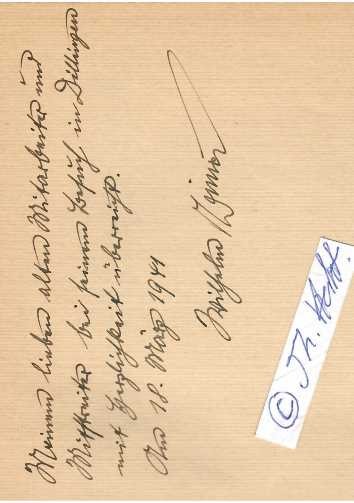 Meinem lieben alten Mitarbeiter und
Mitstreiter bei seinem Besuch in Dillingen
mit Herzlichkeit überreicht.
Am 18. März 1941
Wilhelm
© Th.